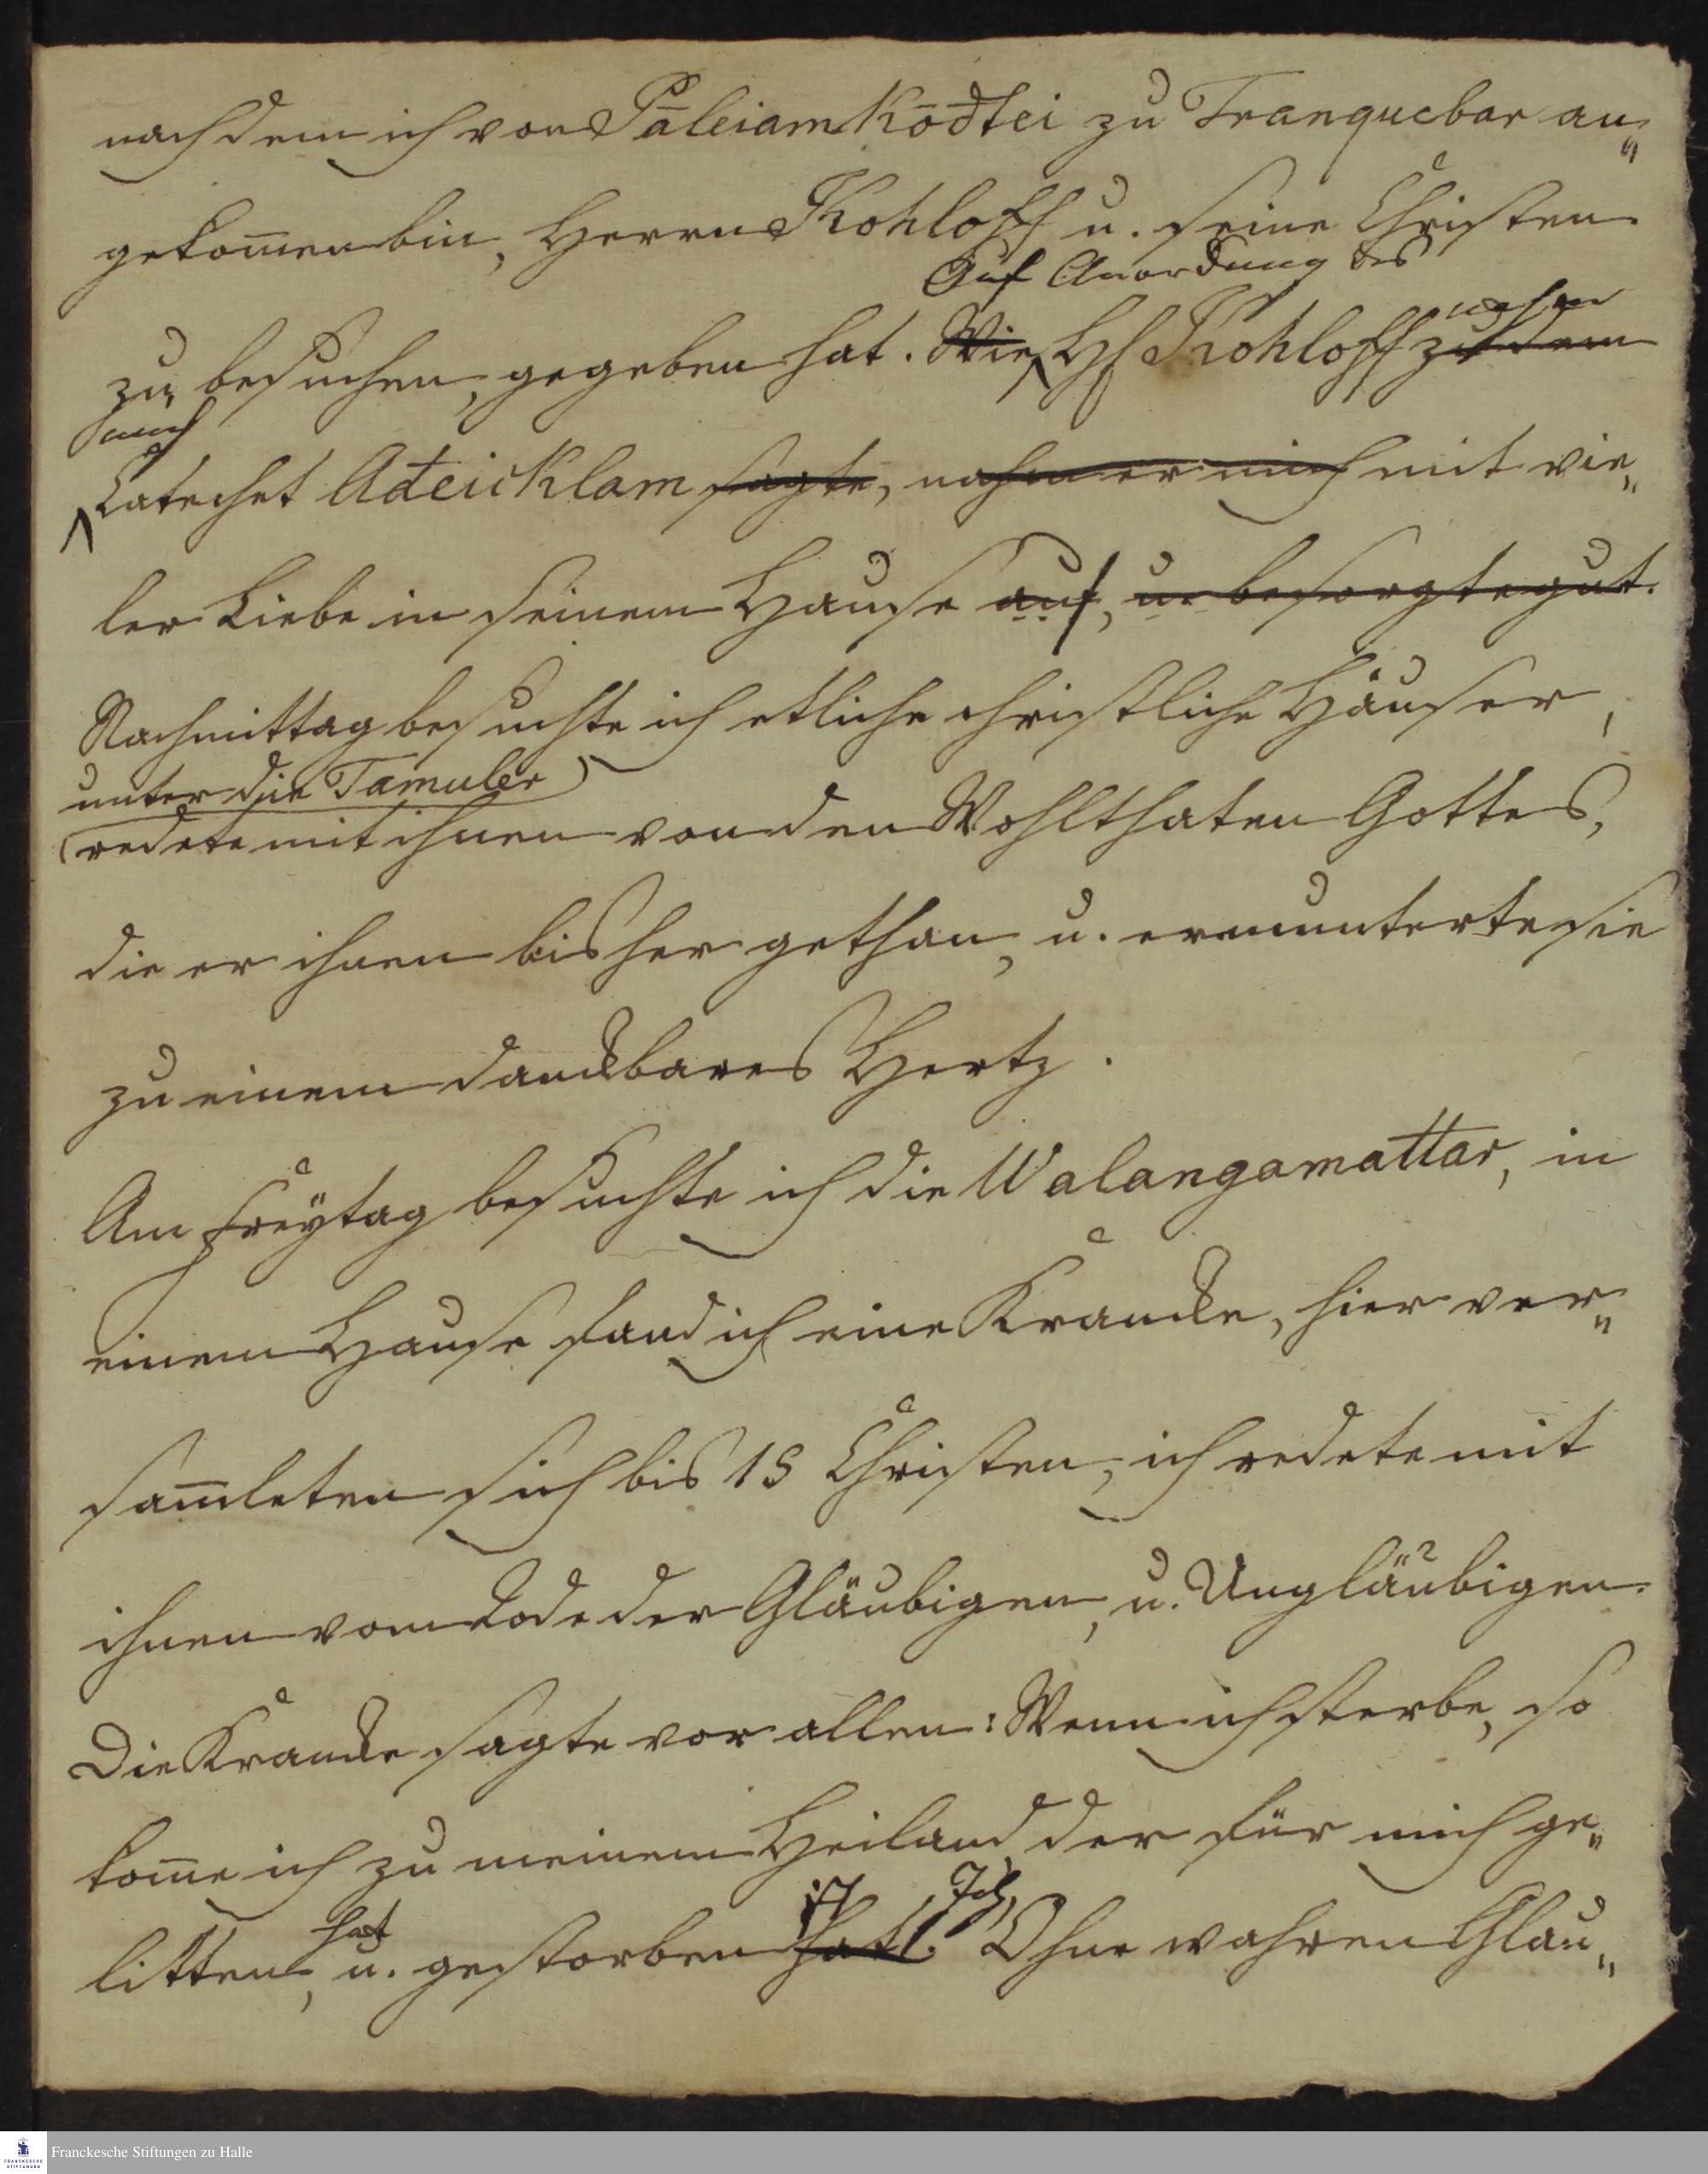 nachdem ich von Pāleiam Kōđtei zu Tranquebar an„
gekom̄en bin, Herrn Kohloff u. seine Christen
Auf Anordnung des
zu besuchen, gegeben hat. Wie H Kohloff zu dem
nahm
mich
Catechet Ađeicklam sagte, nahm er mich mit vie„
ler Liebe in seinem Hause auf, u. besorgte gut.
Nachmittag besuchte ich etliche christliche Häuser,
unter die Tamuler
redete mit ihnen von den Wohlthaten Gottes,
die er ihnen bisher gethan, u. ermunterte sie
zu einem danckbares Hertz.
Am Freytag besuchte ich die Walangamattar, in
einem Hause fand ich eine Krancke, hier ver„
sam̄leten sich bis 15 Christen, ich redete mit
ihnen vom Tode der Gläubigen, u. Ungläubigen.
Die Krancke sagte vor allen: Wenn ich sterbe, so
kom̄e ich zu meinem Heiland, der für mich ge„
hat ist Ich
litten, u. gestorben hat. Ohne wahren Glau„
Franckesche Stiftungen zu Halle
FRANCKESCHE
STIFTUNGEN